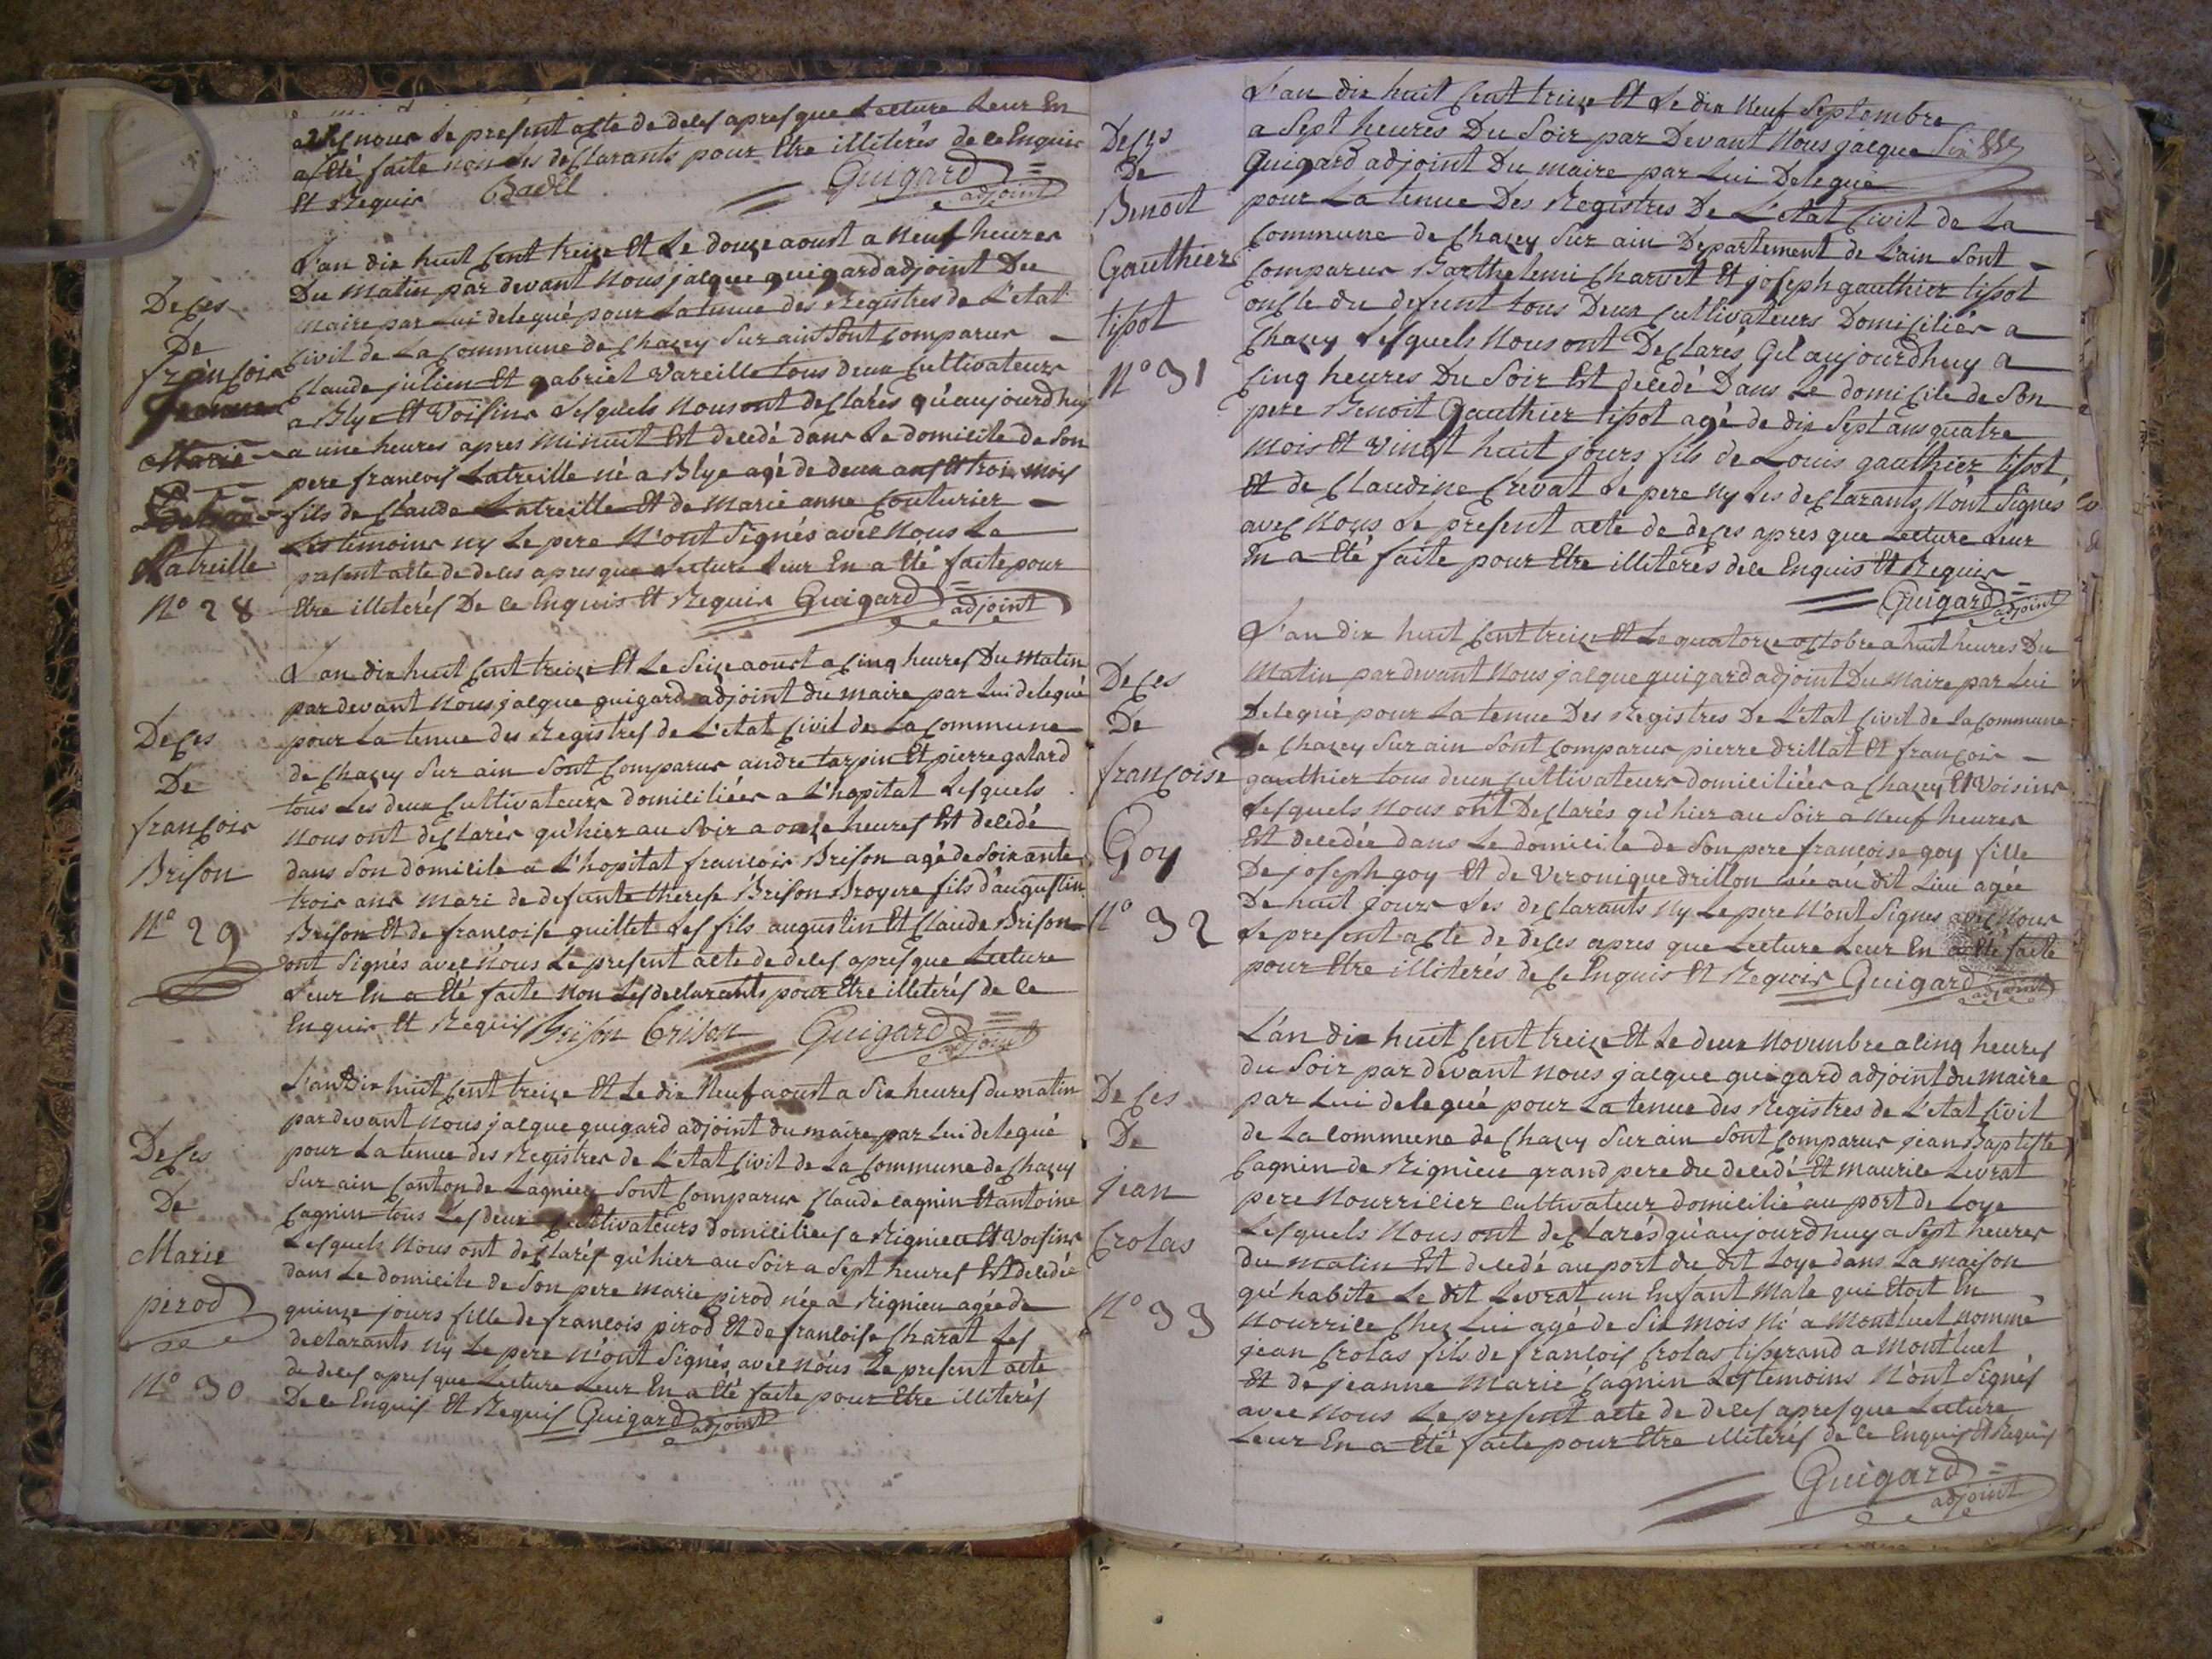 avec nous le present acte de deces apres que Lecture Leur En
a Eté faite non les declarants pour Etre illiterés de ce Enquis
Et Requis Badel Guigard adjoint
L'an dix huit Cent treize Et Le douze aoust a Neuf heures
Du Matin par devant Nous jacque guigard adjoint Du
Maire par Lui delegué pour La tenue des Registres de L'etat
Civil de La Commune de Chazey Sur ain Sont Comparus
Claude julien Et gabriel Vareille tous deux Cultivateurs
a Blye Et Voisins Lesquels Nous ont declarés qu'aujourdhuy
a une heures apres Minuit Est decedé dans Le domicile de Son
pere francois Latreille né a Blye agé de deux ans Et trois mois
fils de Claude Latreille Et de Marie anne Couturier
Les temoins ny Le pere N'ont Signés avec Nous Le
present acte de deces apres que Lecture Leur En a Eté faite pour
Etre illiterés De ce Enquis Et Requis Guigard adjoint
Deces
De
françois
Jeanne
Marie
Latreille
N° 28
L'an dix huit Cent treize Et Le Seize aoust a Cinq heures Du Matin
par devant Nous jacque guigard adjoint du maire par Lui delegué
pour La tenue des Registres de L'etat Civil de La Commune
de Chazey Sur ain Sont Comparus andre tarpin Et pierre galard
tous Les deux Cultivateurs domiciliées a L'hopital Lesquels
Nous ont declarés qu'hier au Soir a onze heures Est decedé
dans Son domicile a L'hopital francois Brison agé de Soixante
trois ans Mari de defunte therese Brison Broyere fils d'augustin
Brison Et de francoise guillet Les fils augustin Et Claude Brison
ont Signés avec Nous Le present acte de deces apres que Lecture
Leur En a Eté faite Non Les declarants pour Etre illiterés de ce
Enquis Et Requis Brison Brison Guigard adjoint
Deces
De
françois
Brison
N° 29
L'an Dix huit Cent treize Et Le dix Neuf aoust a Six heures du matin
par devant Nous jacque guigard adjoint du maire par Lui delegué
pour La tenue des Registres de L'etat Civil de La Commune de Chazey
Sur ain Canton de Lagnieu Sont Comparus Claude Cagnin Et antoine
Cagnin tous Les deux Cultivateurs domiciliées a Rignieu Et Voisins
Lesquels Nous ont declarés qu'hier au Soir a Sept heures Est decedée
dans Le domicile de Son pere Marie pirod née a Rignieu agée de
quinze jours fille de francois pirod Et de francoise Charat Les
declarants ny Le pere N'ont Signés avec Nous Le present acte
de deces apres que Lecture Leur En a Eté faite pour Etre illiterés
De ce Enquis Et Requis Guigard adjoint
Deces
De
Marie
pirod
N° 30
L'an dix huit Cent treize Et Le dix Neuf Septembre
a Sept heures Du Soir par Devant Nous jacque
Guigard adjoint Du maire par Lui Delegué
pour La tenue Des Registres De L'etat Civil de La
Commune de Chazey Sur ain Departement de L'ain Sont
Comparus Barthelemi Charvet Et joseph gauthier tissot
oncle du defunt tous Deux Cultivateurs Domiciliés a
Chazey Lesquels Nous ont Declarés Qu'aujourdhuy a
Cinq heures Du Soir Est decedé Dans Le domicile de Son
pere Benoit Gauthier tissot agé de dix Sept ans quatre
Mois Et Vingt huit jours fils de Louis gauthier tissot
Et de Claudine Crevat Le pere Ny Les declarants N'ont Signés
avec Nous Le present acte de deces apres que Lecture Leur
En a Eté faite pour Etre illiterés de ce Enquis Et Requis
Guigard adjoint
Deces
De
Benoit
Gauthier
tissot
N° 31
L'an dix huit Cent treize Et Le quatorze octobre a huit heures Du
Matin par devant Nous jacque guigard adjoint Du Maire par Lui
Delegué pour La tenue Des Registres De L'etat Civil de La Commune
de Chazey Sur ain Sont Comparus pierre drillat Et françois
gauthier tous deux Cultivateurs domiciliées a Chazey Et Voisins
Lesquels Nous ont Declarés qu'hier au Soir a Neuf heures
Est decedée dans Le domicile de Son pere francoise goy fille
De joseph goy Et de Veronique drillon née au dit Lieu agée
De huit jours Les declarants Ny Le pere N'ont Signes avec Nous
Le present acte de deces apres que Lecture Leur En a Eté faite
pour Etre illiterés de ce Enquis Et Requis Guigard adjoint
Deces
De
françoise
Goy
N° 32
L'an dix huit Cent treize Et Le deux Novembre a Cinq heures
du Soir par devant Nous jacque guigard adjoint du Maire
par Lui delegué pour La tenue des Registres de L'etat Civil
de La Commune de Chazey Sur ain Sont Comparus jean Baptiste
Cagnin de Rignieu grand pere du decedé Et Maurice Levrat
pere Nourricier Cultivateur domicilié au port de Loye
Lesquels Nous ont declarés qu'aujourdhuy a Sept heures
du matin Est decedé au port du dit Loye dans La maison
qu'habite Le dit Levrat un Enfant Male qui Etoit En
Nourrice Chez Lui agé de Six mois Né a Montluel nommé
jean Crolas fils de francois Crolas tisserand a Montluel
Et de jeanne Marie Cagnin Les temoins N'ont Signés
avec Nous Le present acte de deces apres que Lecture
Leur En a Eté faite pour Etre illiterés de ce Enquis Et Requis
Guigard adjoint
Deces
De
jean
Crolas
N° 33